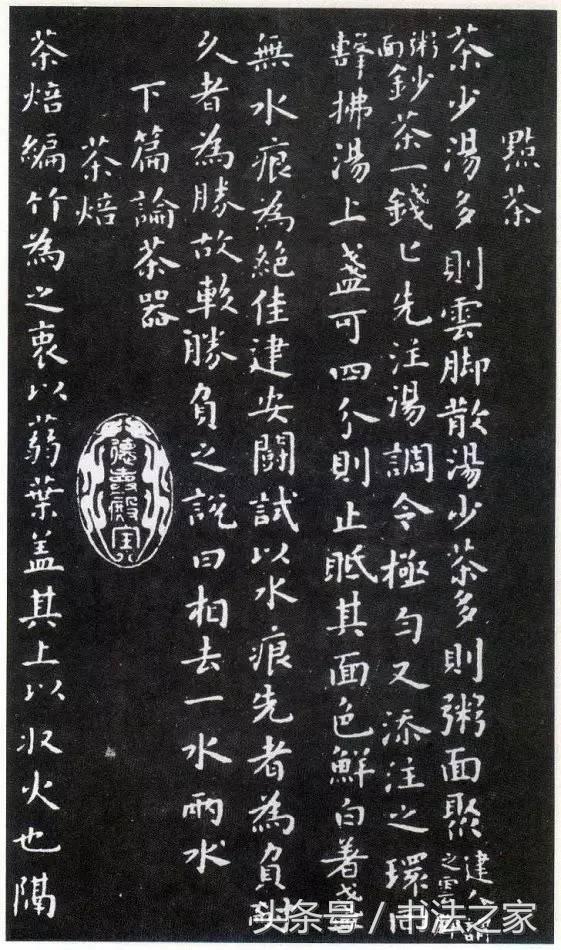 點茶
茶少湯多則雲脚散湯少茶多則粥面聚建人謂之雲脚
粥面鈔茶一錢匕先注湯調令極勻又添注之環回
擊拂湯上盞可四分則止眡其面色鮮白著盞
無水痕為絕佳建安鬪試以水痕先者為負耐
久者為勝故較勝負之說曰相去一水兩水
下篇論茶器
茶焙
德壽殿寶
茶焙編竹為之裹以蒻葉盖其上以収火也隔
头条号/书法之家